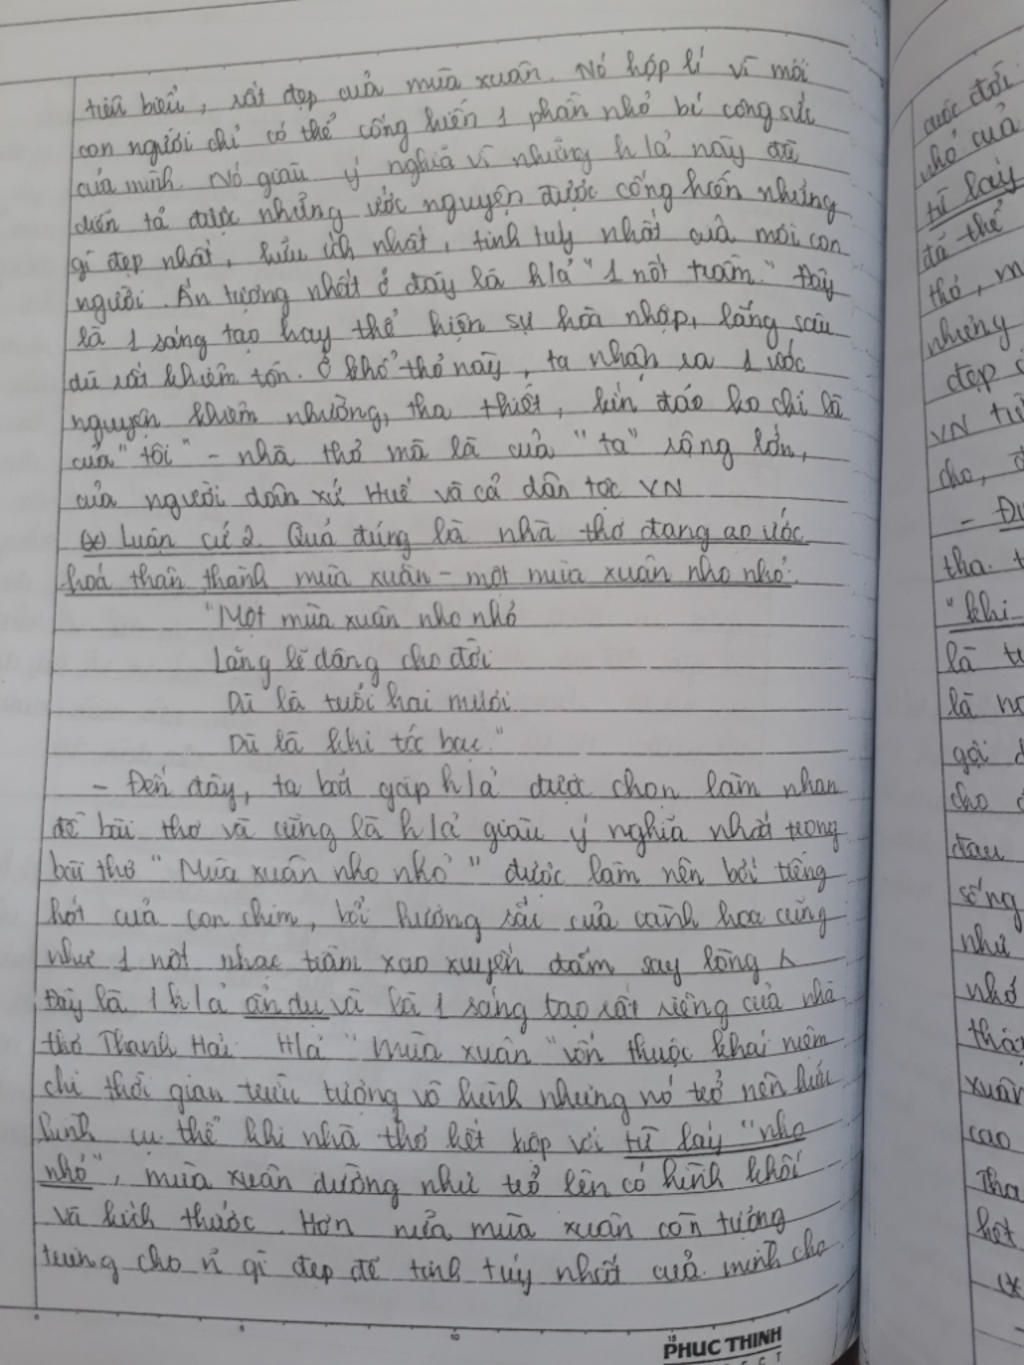 tiêu biểu, rất đẹp của mùa xuân. Nó hợp lí vì mỗi
con người chỉ có thể cống hiến 1 phần nhỏ bé công sức
của mình. Nó giàu ý nghĩa vì những h/ả này đã
diễn tả được những ước nguyện được cống hiến những
gì đẹp nhất, hữu ích nhất, tinh tuý nhất của mỗi con
người. Ấn tượng nhất ở đây là h/ả "1 nốt trầm." Đây
là 1 sáng tạo hay thể hiện sự hoà nhập, lắng sâu
dù rất khiêm tốn. Ở khổ thơ này, ta nhận ra 1 ước
nguyện khiêm nhường, tha thiết, kín đáo ko chỉ là
của "tôi" - nhà thơ mà là của "ta" rộng lớn,
của người dân xứ Huế và cả dân tộc VN
(*) Luận cứ 2. Quả đúng là nhà thơ đang ao ước
hoá thân thành mùa xuân - một mùa xuân nho nhỏ.
"Một mùa xuân nho nhỏ
Lặng lẽ dâng cho đời
Dù là tuổi hai mươi
Dù là khi tóc bạc."
- Đến đây, ta bắt gặp h/ả được chọn làm nhan
đề bài thơ và cũng là h/ả giàu ý nghĩa nhất trong
bài thơ "Mùa xuân nho nhỏ" được làm nên bởi tiếng
hót của con chim, bởi hương sắc của cành hoa cũng
như 1 nốt nhạc trầm xao xuyến đắm say lòng
Đây là 1 h/ả ẩn dụ và là 1 sáng tạo rất riêng của nhà
thơ Thanh Hải. H/ả "Mùa xuân" vốn thuộc khái niệm
chỉ thời gian trừu tượng vô hình nhưng nó trở nên hữu
hình cụ thể khi nhà thơ kết hợp với từ láy "nho
nhỏ", mùa xuân dường như trở lên có hình khối
và kích thước. Hơn nữa mùa xuân còn tượng
trưng cho n~ gì đẹp đẽ tinh túy nhất của mình cho
PHUC THINH
cuộc đời
nhỏ của
từ láy
đã thể
thơ, m
những
đẹp
VN
cho,
-
tha t
"khi
là t
là
gọi
cho
đau
sống
như
nhỏ
xuân
cao
Tha
hết